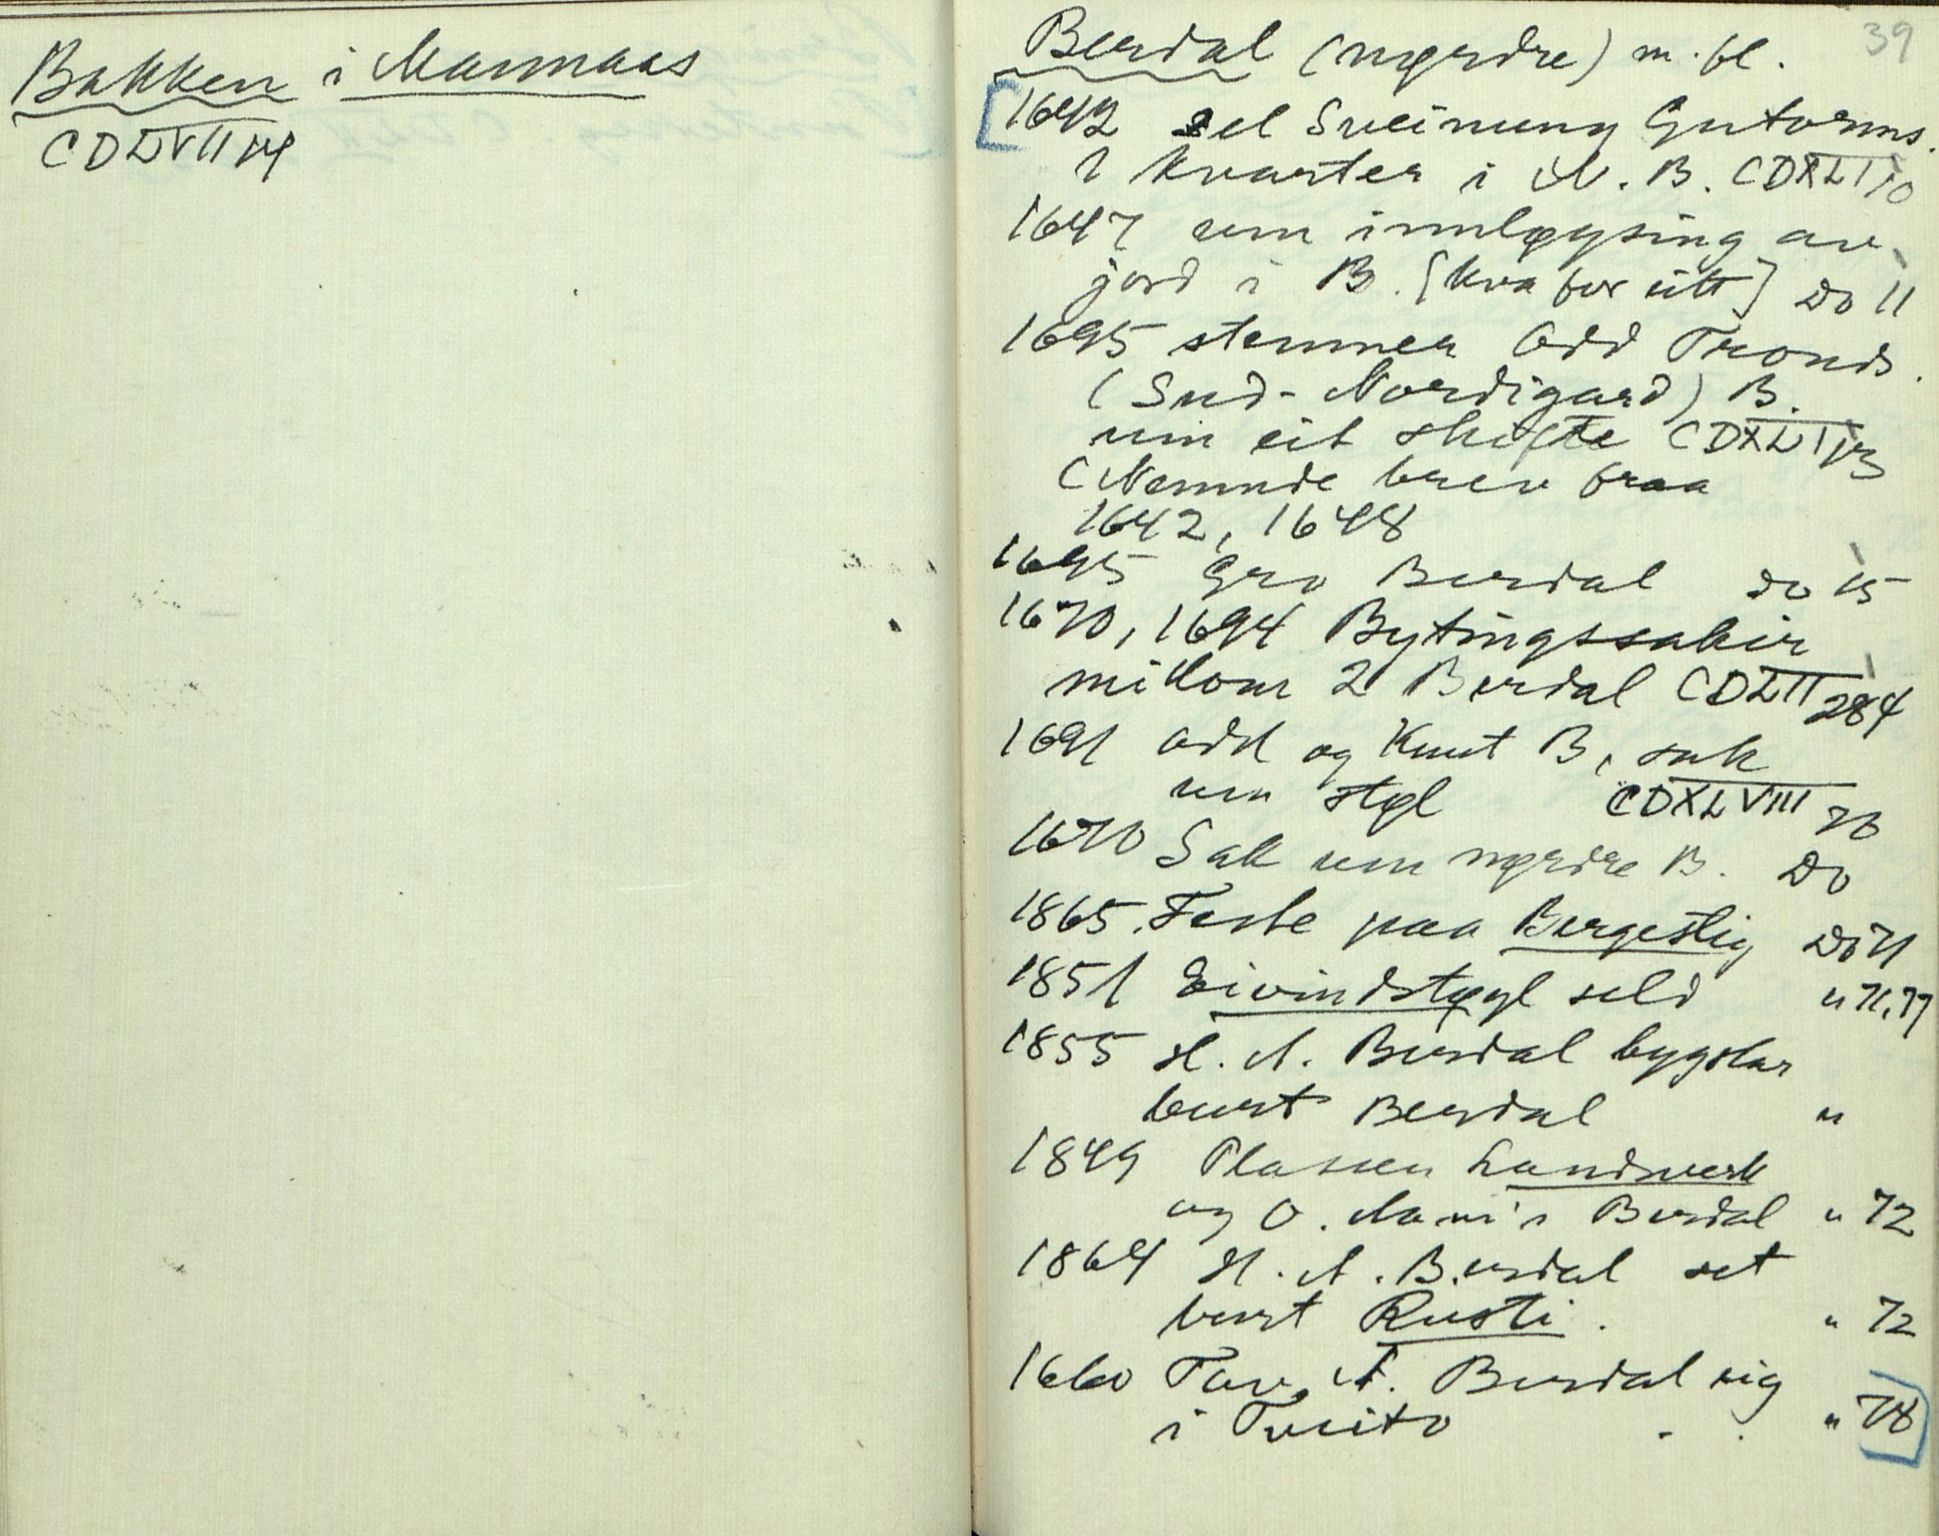 Bakken i Mannaas
CDLVII 14
39
Berdal (nørdre) m. fl.
1642 sel Sveinung Gutorms.
1 kvarter i N. B. CDXLI 10
1647 um innløysing av
jord i B. [kva for eitt] Do 11
1695 stemner Odd Tronds.
(Sud-Nordigard) B.
um eit skifte CDXLI 13
(Nemnde brev fraa
1642, 1648
1695 Gro Berdal do 15
1670, 1694 Bytingssakir
millom 2 Berdal CDLII 284
1691 Odd og Knut B, sak
um støl CDXLVIII 70
1670 Sak um nørdre B. Do
1865. Feste paa Bergestig Do 71
1851 Eivindstøyl seld " 71, 77
1855 H. A. Berdal bygslar
burt Berdal "
1849 Plassen Landsverk
og O. i Berdal " 72
1864 H. A. Berdal set
burt Rusti. " 72
1660 Tov A. Berdal eig
i Tveito " 78